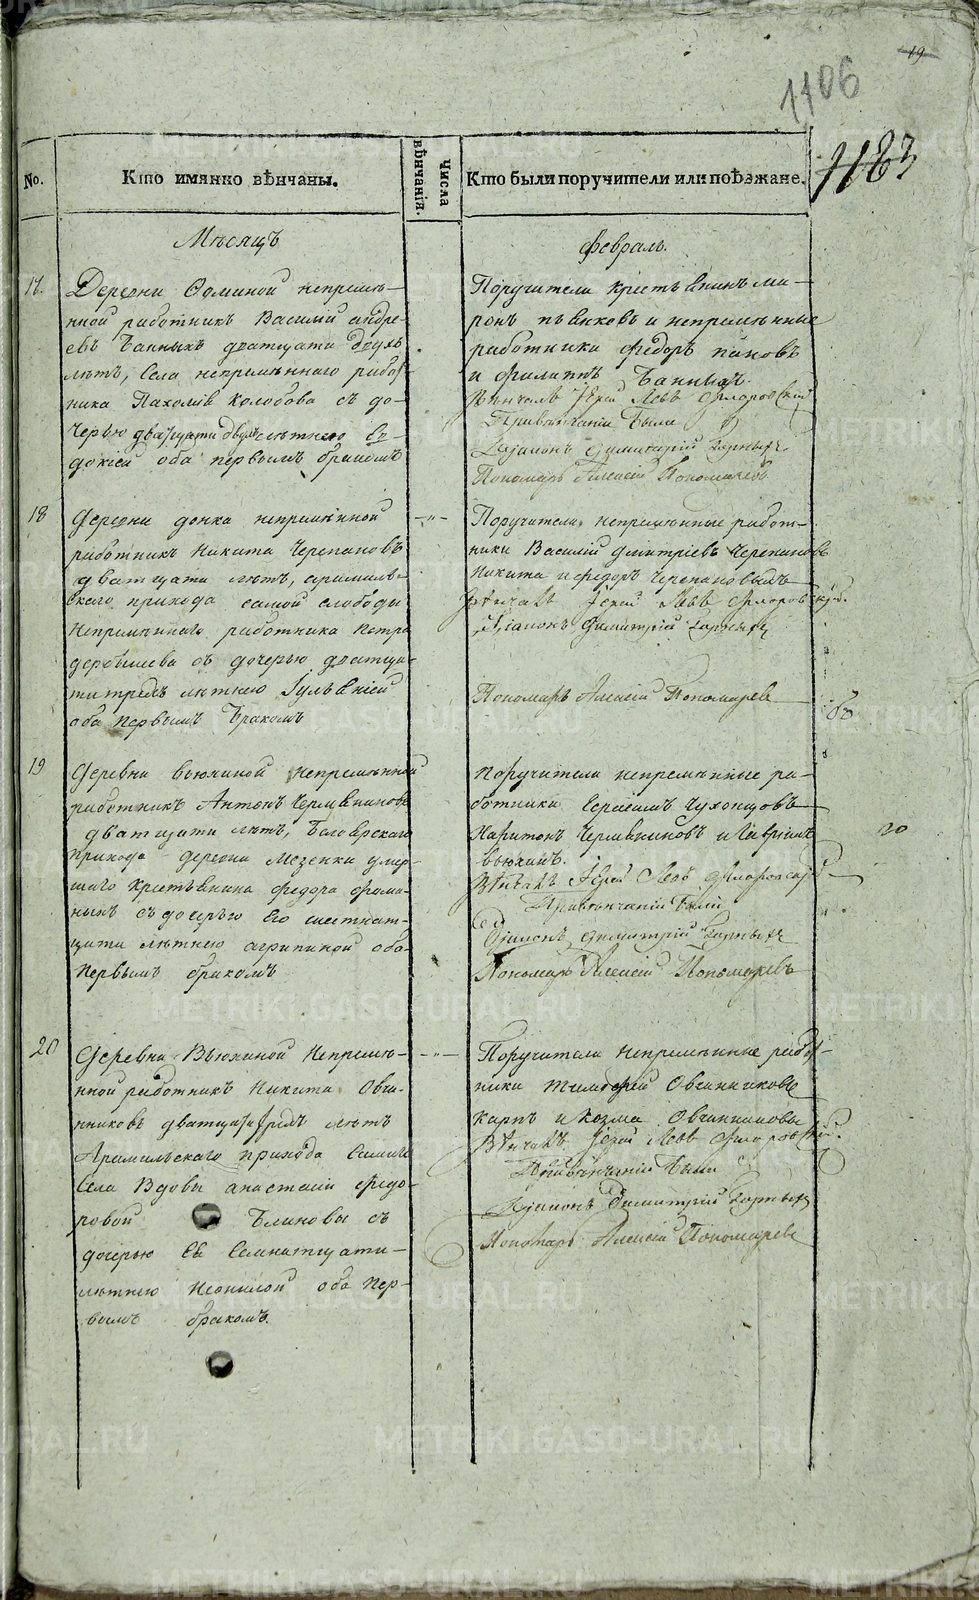 19
1106
1183
No.
Кто имянно вѣнчаны.
Числа вѣнчанія.
Кто были поручители или поѣзжане.
Мѣсяцъ
февраль.
17.
Деревни Фоминой непремѣ-
нной работникъ Василий андре-
евъ Банныхъ дватцати двухъ
лѣтъ, Села непремѣннаго работ
ника Пахомія Колобова съ до-
черью дватцати двулѣтнею Ев-
докіей оба первымъ бракомъ
Поручители Крестьянинъ ми-
ронъ пьянковъ и непремѣнные
работники федоръ пановъ
и филипъ Банныхъ.
Вѣнчалъ Іерей Левъ Флоровский
Привѣнчаніи Были
Діаконъ Димитрій
Пономарь Алексій Пономаревъ
18
Деревни непремѣнной
работникъ Никита Черепановъ
дватцати лѣтъ, арамилв-
скаго прихода самой слободы
Непремѣннаго работника Петра
дербышева съ дочерью дватца-
ти трехъ лѣтнею Іульяніей
оба первымъ Бракомъ
Поручители непремѣнные работ-
ники Василій дмитріевъ Черепановъ
Никита и федоръ Черепановыхъ
Вѣнчалъ Іерей Левъ Флоровский.
Діаконъ Димитрій
Пономарь Алексій Пономаревъ
19
Деревни вьюхиной Непремѣнной
работникъ Антонъ Черемвниновъ
дватцати лѣтъ, Белоярскаго
прихода деревни Мезенки умер-
шаго Крестьянина федора фоми-
ныхъ съ дочерью Его шестнат-
цати лѣтнею агрипиной оба
первымъ бракомъ
Поручители непремѣнные ра-
ботники Герасимъ Чухонцовъ
Харитонъ и Гаврилъ
вьюхинъ.
Вѣнчалъ Іерей Левъ Флоровский
Привѣнчаніи Были
Діаконъ Димитрій
Пономарь Алексій Пономаревъ
20
20
Деревни Вьюхиной Непремѣ-
нной работникъ Никита Овчи-
нниковъ дватцати трехъ лѣтъ
Арамильскаго прихода Самаго
Села Вдовы анастасіи федо-
ровой Блиновы съ
дочерью Её Семнатцати-
лѣтнею Неонилой оба пер-
вымъ бракомъ.
Поручители непремѣнные работ-
ники тимофей Овчинниковъ
карпъ и козма Овчинниковы
Вѣнчалъ Іерей Левъ Флоровский.
Привѣнчаніи Были
Діаконъ Димитрій
Пономарь Алексій Пономаревъ
METRIKI.GASO-URAL.RU